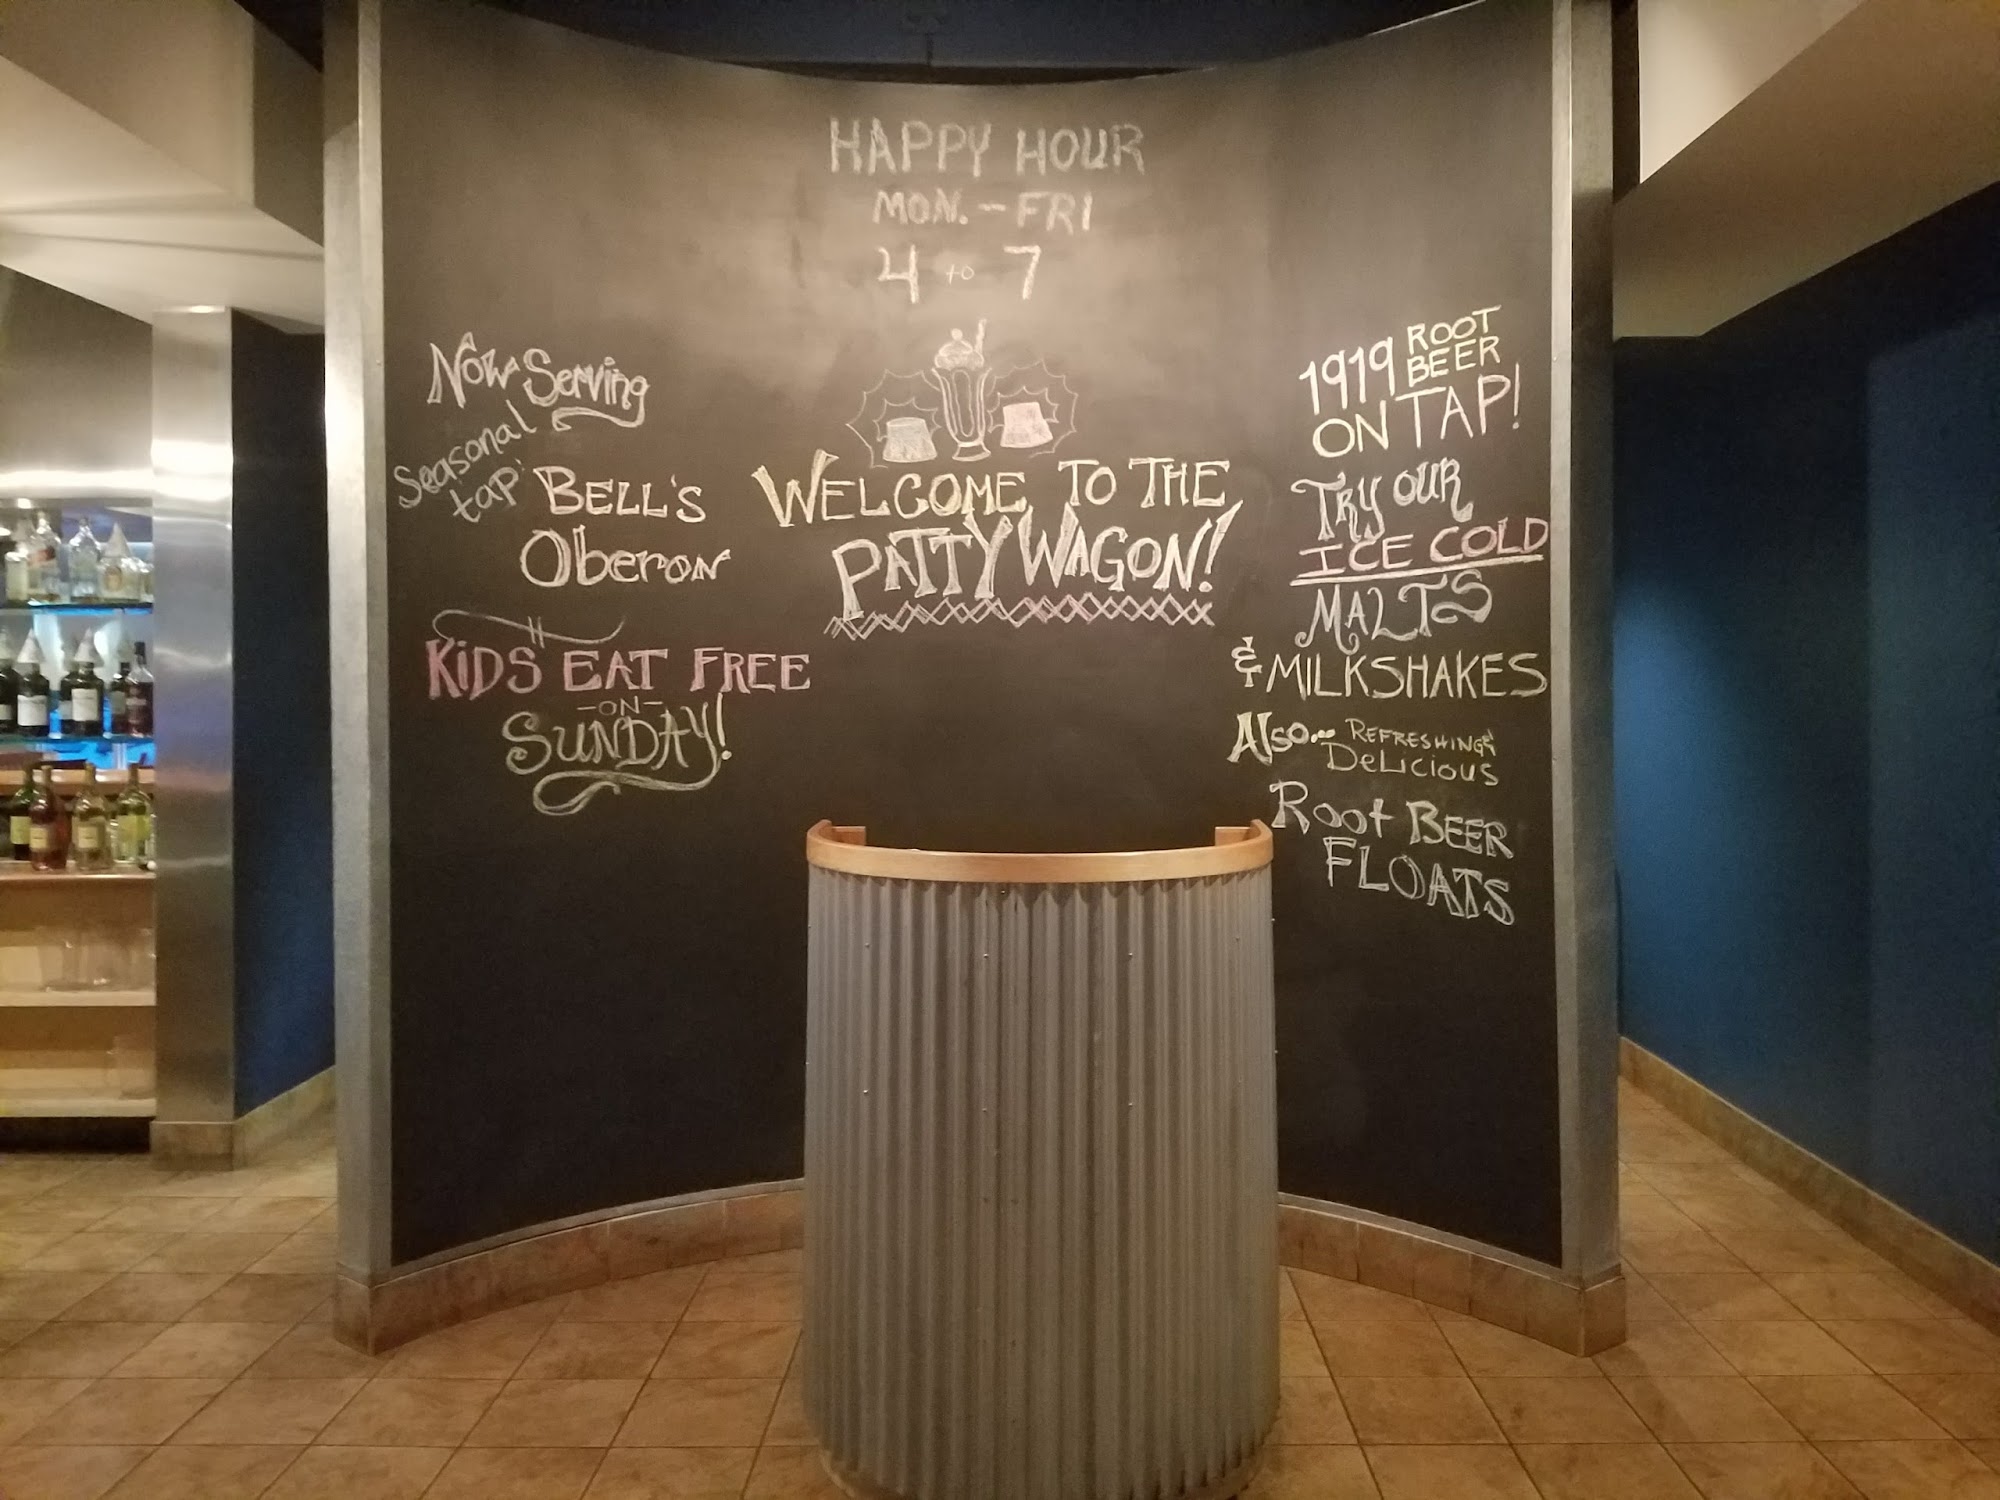 HAPPY HOUR
MON. - FRI
4 to 7
Now Serving
Seasonal
tap:
BELL'S
Oberon
KiDS EAT FREE
- ON -
SUNDAY!
WELCOME TO THE
PATTY WAGON!
1919 ROOT
BEER
ON TAP!
TRY OUR
ICE COLD
MALTS
& MILKSHAKES
Also... REFRESHING &
DeLicious
Root BEER
FLOATS